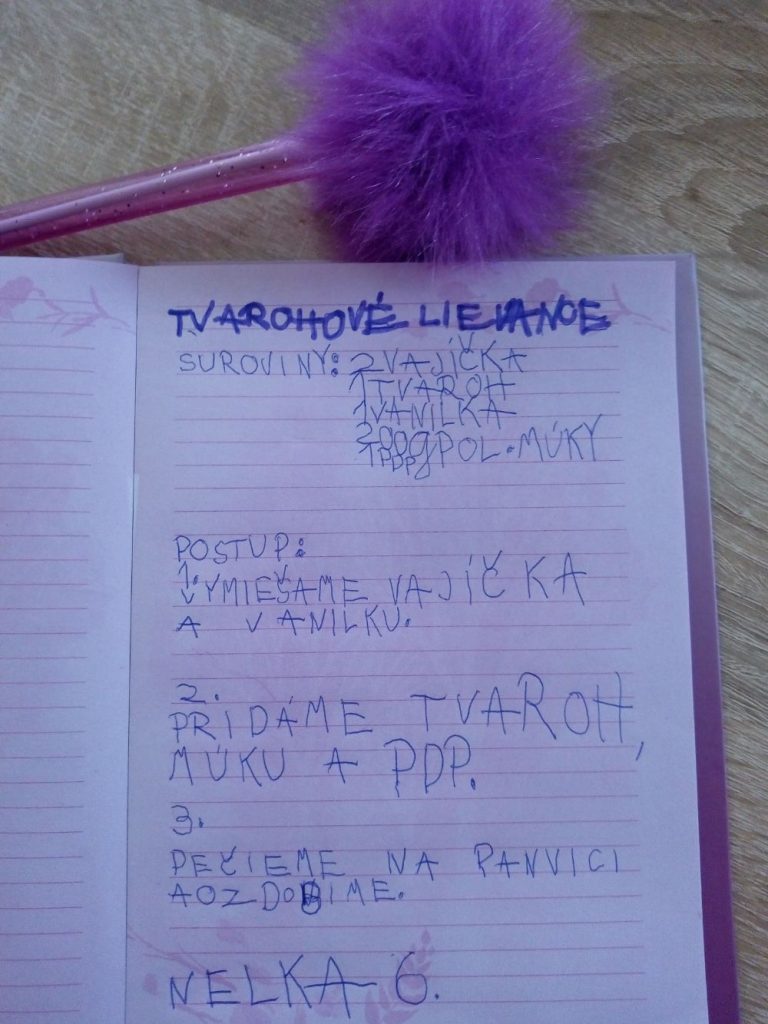 TVAROHOVÉ LIEVANCE
SUROVINY: 2 VAJÍČKA
1 TVAROH
1 VANILKA
200g POL. MÚKY
1 PDP
POSTUP:
1.
VYMIEŠAME VAJÍČKA
A VANILKU.
2.
PRIDÁME TVAROH,
MÚKU A PDP.
3.
PEČIEME NA PANVICI
A OZDOBIME.
NELKA 6.